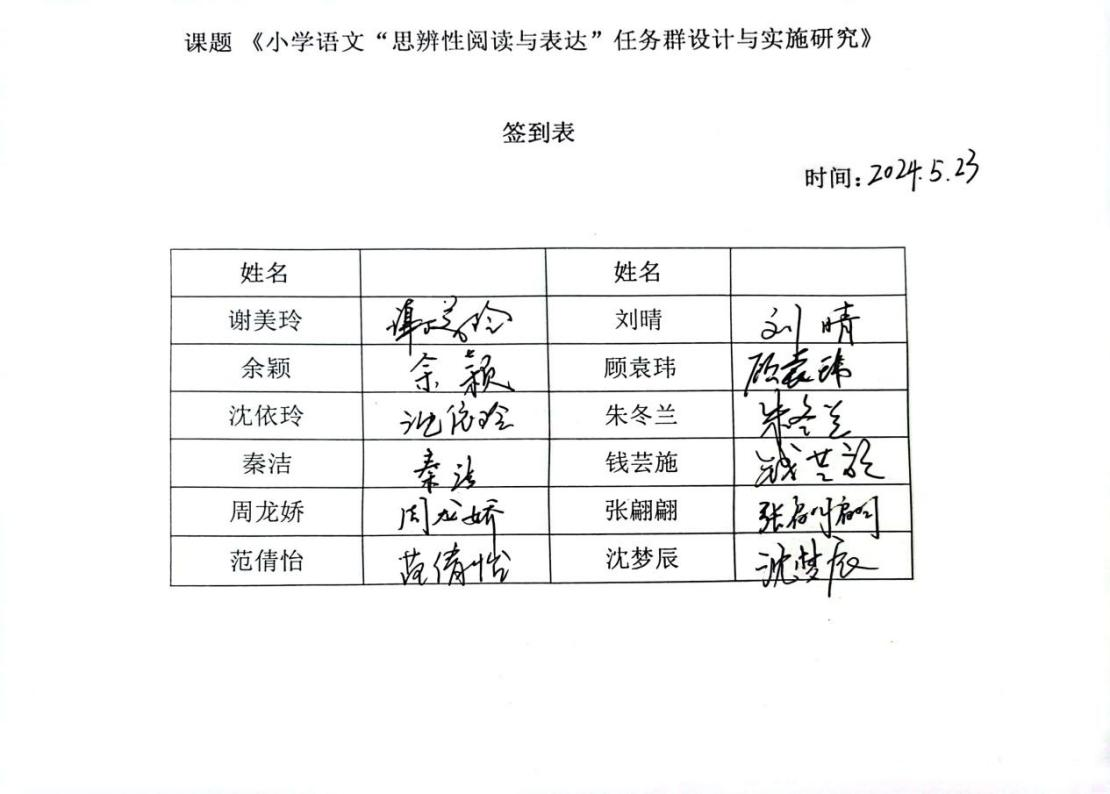 课题 《小学语文“思辨性阅读与表达”任务群设计与实施研究》
签到表
时间:2024.5.23
姓名 姓名
谢美玲 刘晴 刘晴
余颖 余颖 顾袁玮 顾袁玮
沈依玲 沈依玲 朱冬兰 朱冬兰
秦洁 秦洁 钱芸施 钱芸施
周龙娇 周龙娇 张翩翩 张翩翩
范倩怡 范倩怡 沈梦辰 沈梦辰